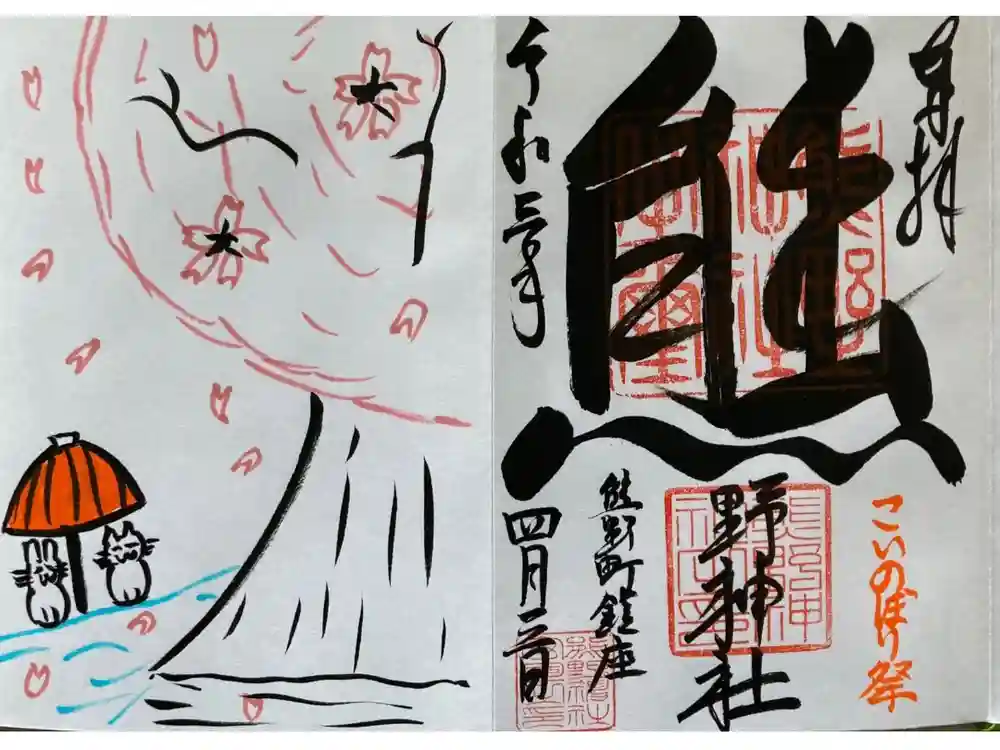 奉拝
こいのぼり祭
熊
野神社
熊野町鎮座
令和三年
四月
大
大